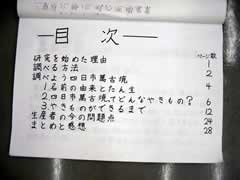 一目次一
ページ数
研究を始めた理由 1
調べる方法 2
調べよう四日市萬古境
1.名前の由来とたん生 4
2.四日市萬古境てどんなやきもの? 6
3.やきものができるまで 12
生産者の今の問題点 24
まとめと感想 28